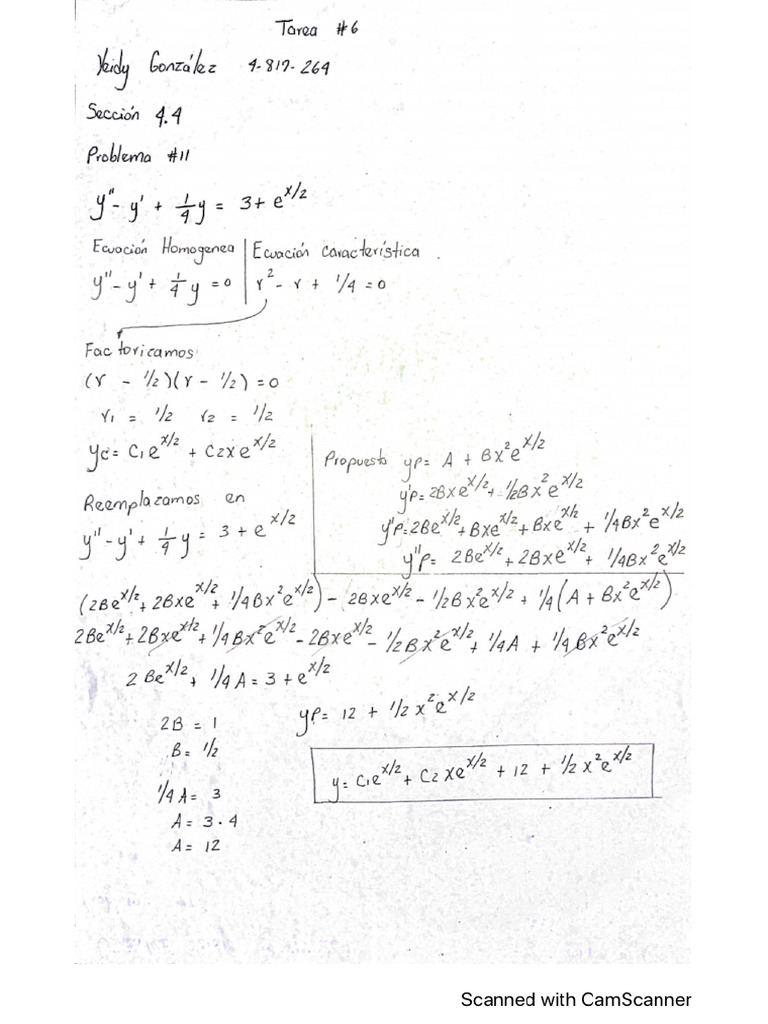 Tarea #6
Yeidy González 4-817-264
Sección 4.4
Problema #11
y" - y' + 1/4 y = 3 + e^x/2
Ecuación Homogenea | Ecuación característica.
y" - y' + 1/4 y = 0 | r² - r + 1/4 = 0
Factoricamos
(r - 1/2)(r - 1/2) = 0
r1 = 1/2 r2 = 1/2
yc = C1e^x/2 + C2xe^x/2
Reemplazamos en
y" - y' + 1/4 y = 3 + e^x/2
Propuesto yp = A + Bx²e^x/2
y'p = 2Bxe^x/2 + 1/2Bx²e^x/2
y"p = 2Be^x/2 + Bxe^x/2 + Bxe^x/2 + 1/4Bx²e^x/2
y"p = 2Be^x/2 + 2Bxe^x/2 + 1/4Bx²e^x/2
(2Be^x/2 + 2Bxe^x/2 + 1/4Bx²e^x/2) - 2Bxe^x/2 - 1/2Bx²e^x/2 + 1/4(A + Bx²e^x/2)
2Be^x/2 + 2Bxe^x/2 + 1/4Bx²e^x/2 - 2Bxe^x/2 - 1/2Bx²e^x/2 + 1/4A + 1/4Bx²e^x/2
2Be^x/2 + 1/4A = 3 + e^x/2
2B = 1
B = 1/2
1/4A = 3
A = 3 · 4
A = 12
yp = 12 + 1/2x²e^x/2
y = C1e^x/2 + C2xe^x/2 + 12 + 1/2x²e^x/2
Scanned with CamScanner